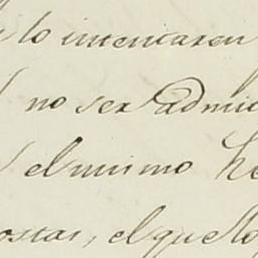 lo intentaren
no ser admi
el mismo he
ostas, el que lo